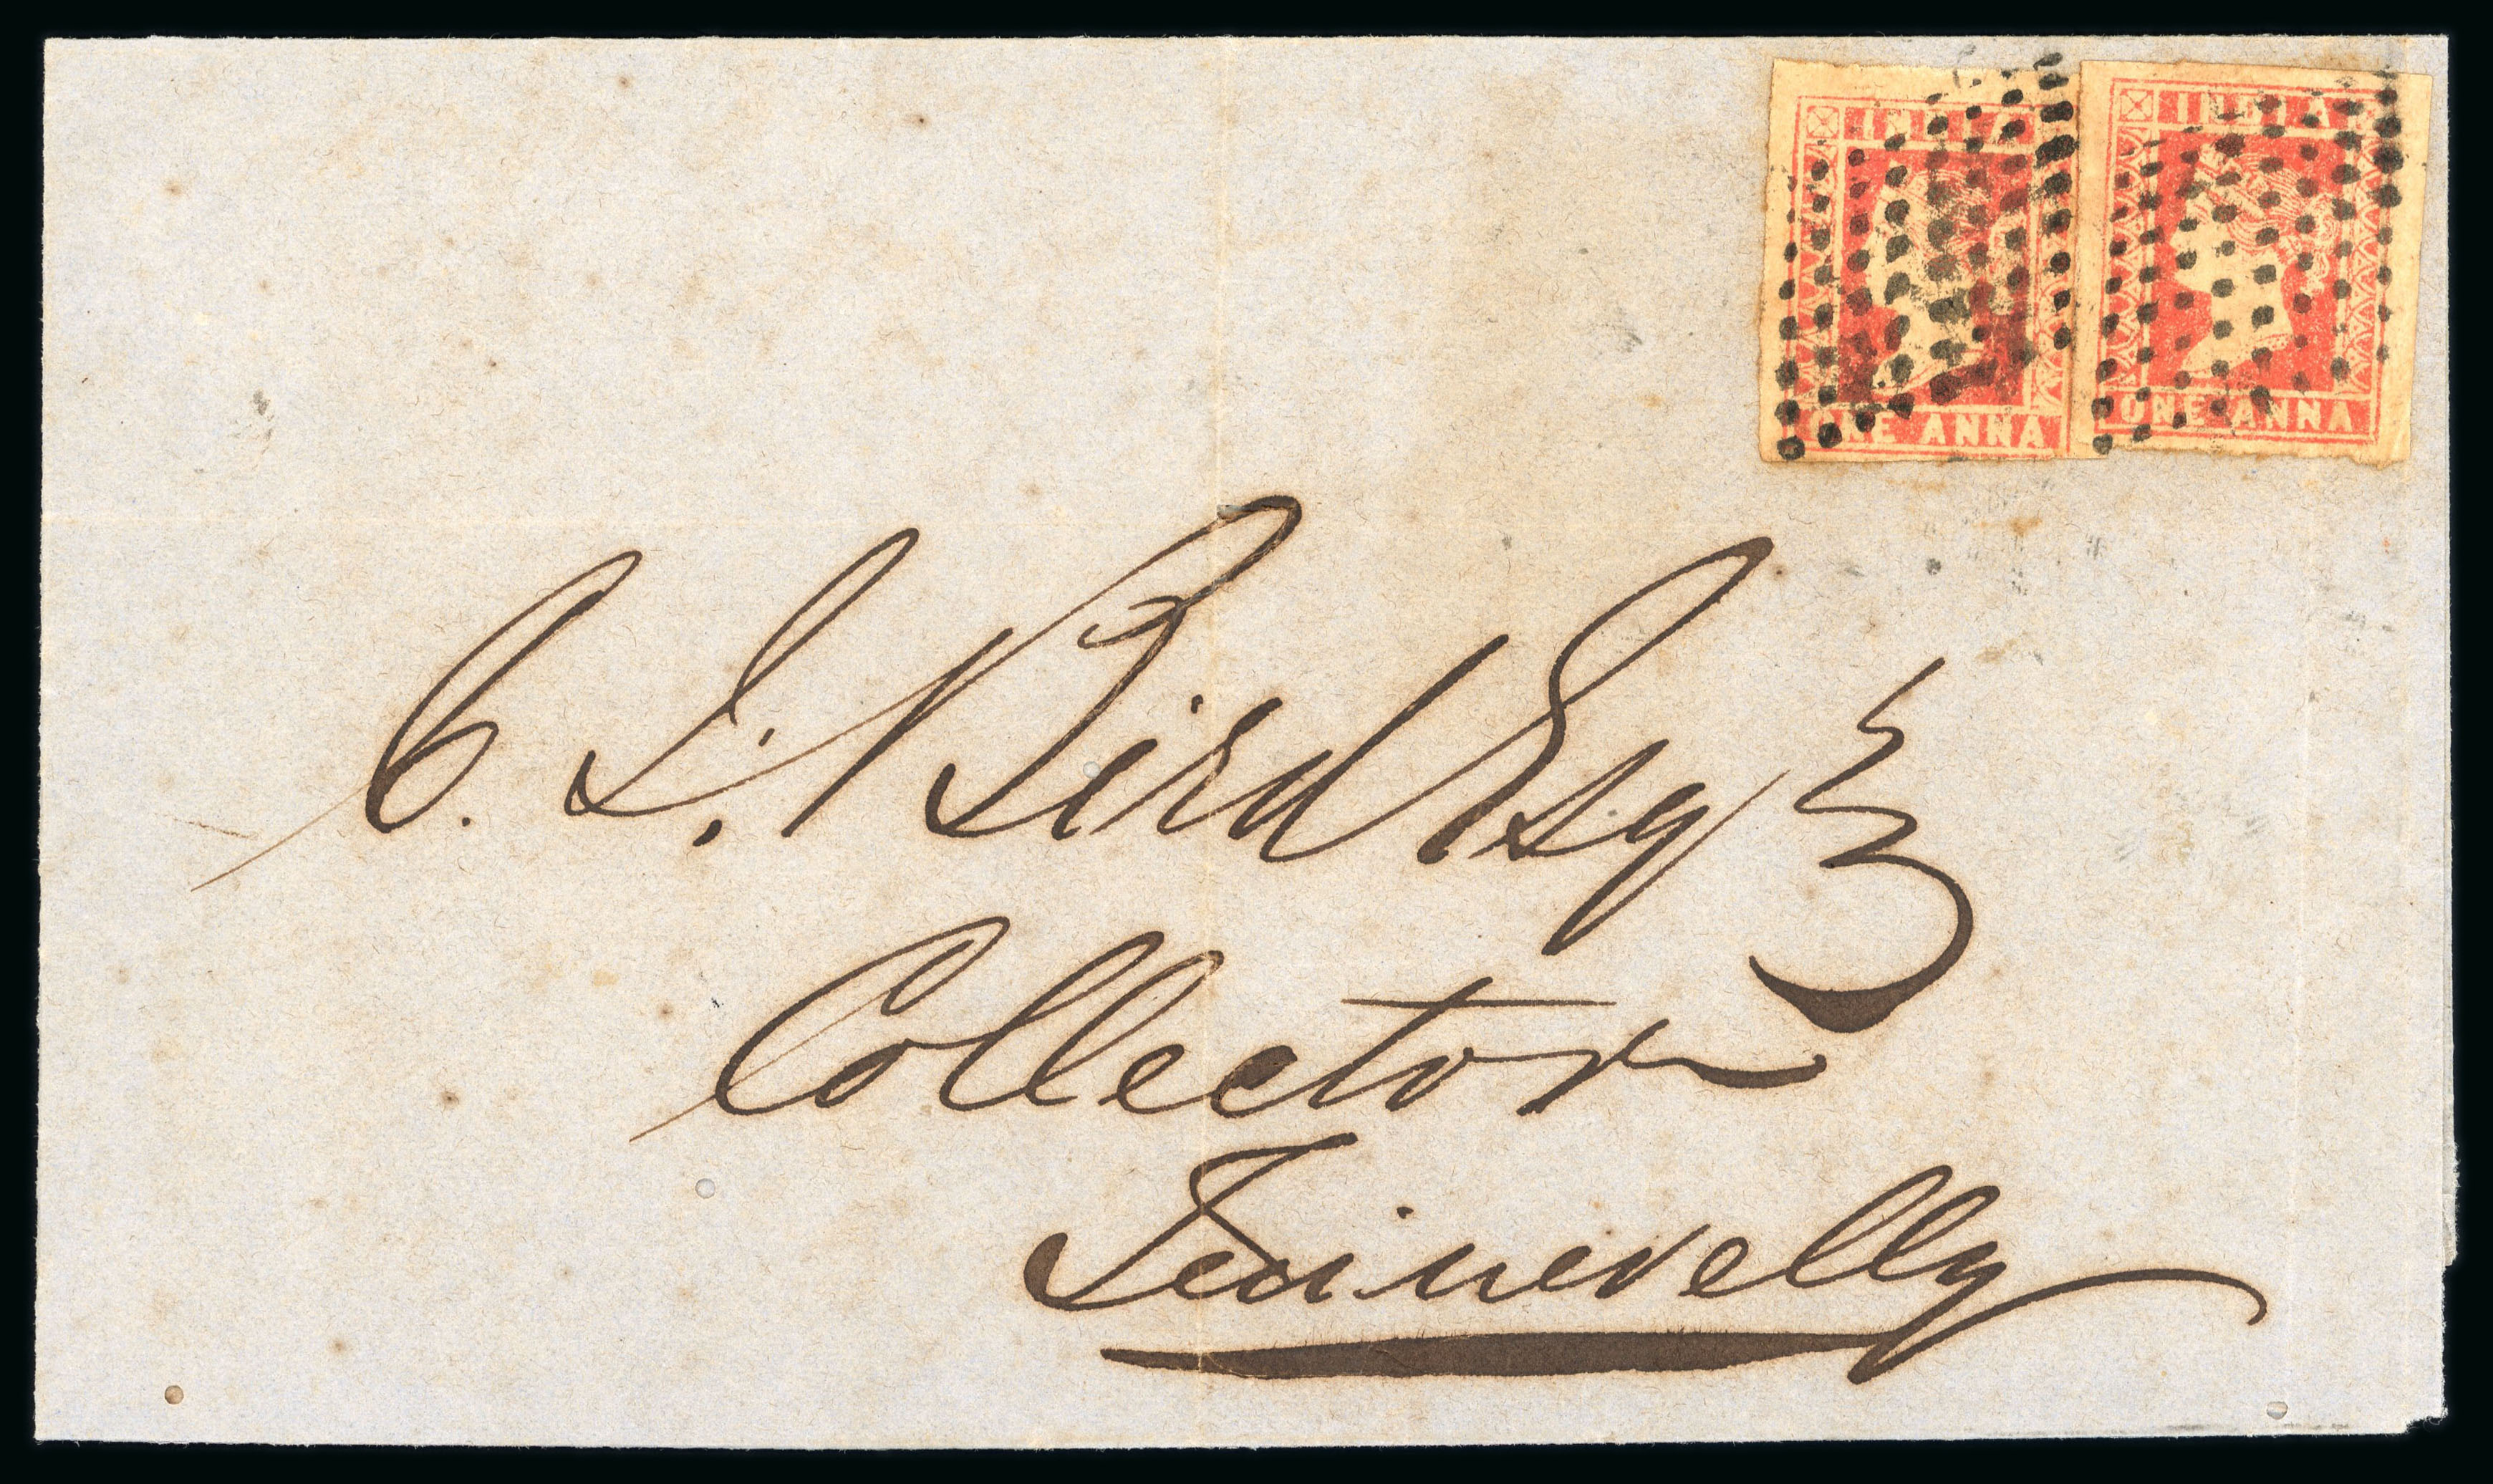 INDIA INDIA
ONE ANNA ONE ANNA
C. J. Bird Esq
Collector
Tinnevelly